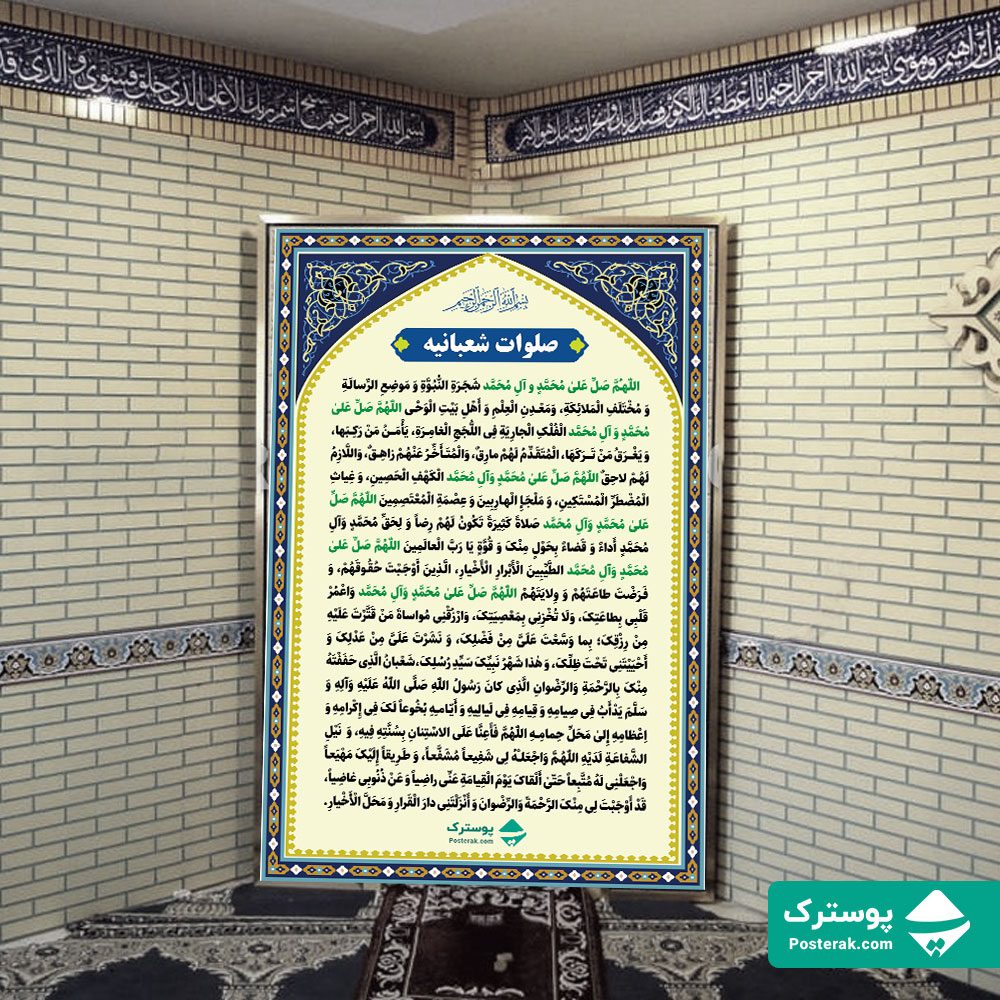 بسم الله الرحمن الرحیم سبح اسم ربک الاعلی الذی خلق فسوی و الذی
بسم الله الرحمن الرحیم انا اعطیناک الکوثر فصل لربک وانحر ان شانئک هو الابتر
بسم الله الرحمن الرحیم
صلوات شعبانیه
اللّهُمَّ صَلِّ عَلىٰ مُحَمَّدٍ و آلِ مُحَمَّد شَجَرَةِ النُّبُوَّةِ وَ مَوضِعِ الرِّسالَةِ
وَ مُخْتَلَفِ الْمَلائِکَةِ، وَمَعْدِنِ الْعِلْمِ وَ أَهْلِ بَیْتِ الْوَحْیِ اللّهُمَّ صَلِّ عَلىٰ
مُحَمَّدٍ وَ آلِ مُحَمَّد الْفُلْکِ الْجارِیَةِ فِی اللُّجَجِ الْغامِرَةِ، یَأْمَنُ مَنْ رَکِبَها،
وَ یَغْرَقُ مَنْ تَرَکَهَا، الْمُتَقَدِّمُ لَهُمْ مارِقٌ، وَالْمُتَأَخِّرُ عَنْهُمْ زاهِقٌ، وَاللَّازِمُ
لَهُمْ لاحِقٌ اللّهُمَّ صَلِّ عَلىٰ مُحَمَّدٍ وَآلِ مُحَمَّد الْکَهْفِ الْحَصِینِ، وَ غِیاثِ
الْمُضْطَرِّ الْمُسْتَکِینِ، وَ مَلْجَإِ الْهارِبِینَ وَ عِصْمَةِ الْمُعْتَصِمِینَ اللّهُمَّ صَلِّ
عَلىٰ مُحَمَّدٍ وَآلِ مُحَمَّد صَلاةً کَثِیرَةً تَکُونُ لَهُمْ رِضاً وَ لِحَقِّ مُحَمَّدٍ وَآلِ
مُحَمَّدٍ أَداءً وَ قَضاءً بِحَوْلٍ مِنْکَ وَ قُوَّةٍ یَا رَبَّ الْعالَمِینَ اللّهُمَّ صَلِّ عَلىٰ
مُحَمَّدٍ وَآلِ مُحَمَّد الطَّیِّبِینَ الْأَبْرارِ الْأَخْیارِ، الَّذِینَ أَوْجَبْتَ حُقُوقَهُمْ، وَ
فَرَضْتَ طاعَتَهُمْ وَ وِلایَتَهُمْ اللّهُمَّ صَلِّ عَلىٰ مُحَمَّدٍ وَآلِ مُحَمَّدٍ وَاعْمُرْ
قَلْبِی بِطاعَتِکَ، وَلَا تُخْزِنِی بِمَعْصِیَتِکَ، وَارْزُقْنِی مُواساةَ مَنْ قَتَّرْتَ عَلَیْهِ
مِنْ رِزْقِکَ؛ بِما وَسَّعْتَ عَلَیَّ مِنْ فَضْلِکَ، وَ نَشَرْتَ عَلَیَّ مِنْ عَدْلِکَ وَ
أَحْیَیْتَنِی تَحْتَ ظِلِّکَ، وَ هٰذا شَهْرُ نَبِیِّکَ سَیِّدِ رُسُلِکَ، شَعْبانُ الَّذِی حَفَفْتَهُ
مِنْکَ بِالرَّحْمَةِ وَالرِّضْوانِ الَّذِی کانَ رَسُولُ اللّهِ صَلَّى اللّهُ عَلَیْهِ وَآلِهِ وَ
سَلَّمَ یَدْأَبُ فِی صِیامِهِ وَ قِیامِهِ فِی لَیالِیهِ وَ أَیّامِهِ بُخُوعاً لَکَ فِی إِکْرامِهِ وَ
إِعْظامِهِ إِلىٰ مَحَلِّ حِمامِهِ اللّهُمَّ فَأَعِنَّا عَلَى الاسْتِنانِ بِسُنَّتِهِ فِیهِ، وَ نَیْلِ
الشَّفاعَةِ لَدَیْهِ اللّهُمَّ وَاجْعَلْهُ لِی شَفِیعاً مُشَفَّعاً، وَ طَرِیقاً إِلَیْکَ مَهْیَعاً
وَاجْعَلْنِی لَهُ مُتَّبِعاً حَتّىٰ أَلْقاکَ یَوْمَ الْقِیامَةِ عَنِّی راضِیاً وَ عَنْ ذُنُوبِی غاضِیاً،
قَدْ أَوْجَبْتَ لِی مِنْکَ الرَّحْمَةَ وَالرِّضْوانَ وَ أَنْزَلْتَنِی دارَ الْقَرارِ وَ مَحَلَّ الْأَخْیارِ.
پوسترک
Posterak.com
پوسترک
Posterak.com